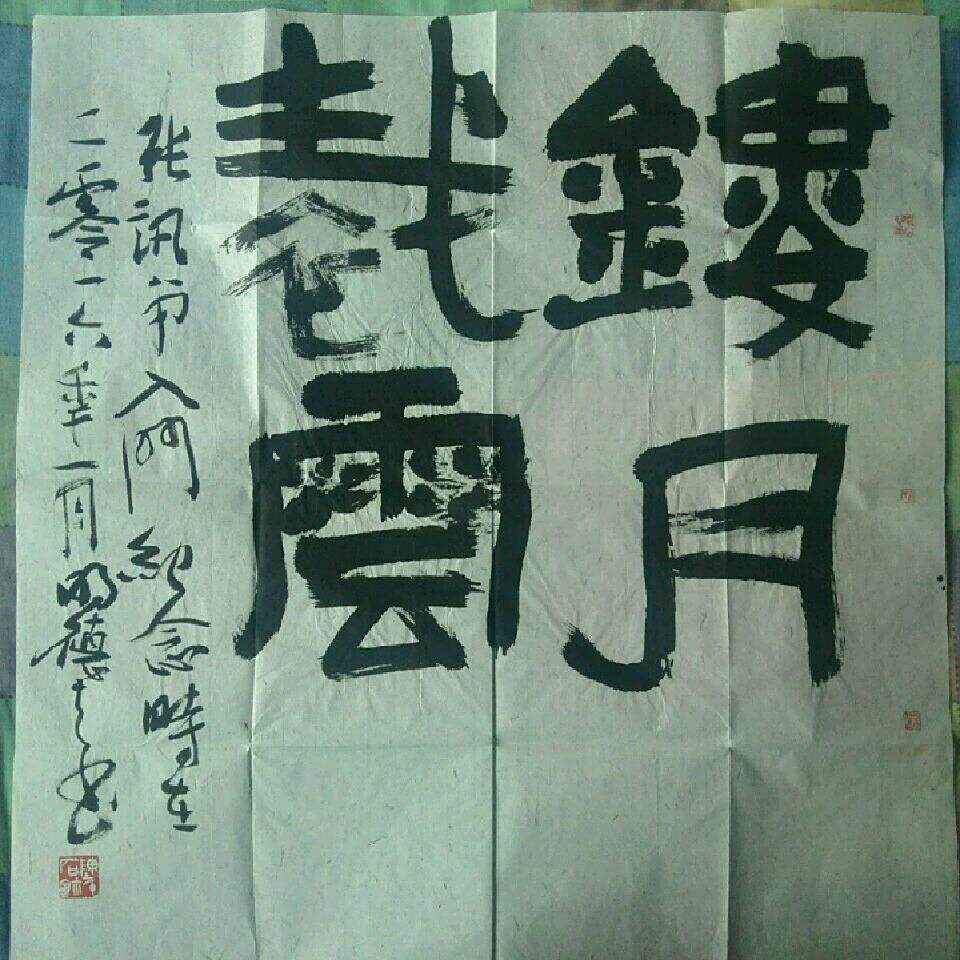 鏤月
裁雲
張訊弟入門紀念時在
二零一六年一月明德書